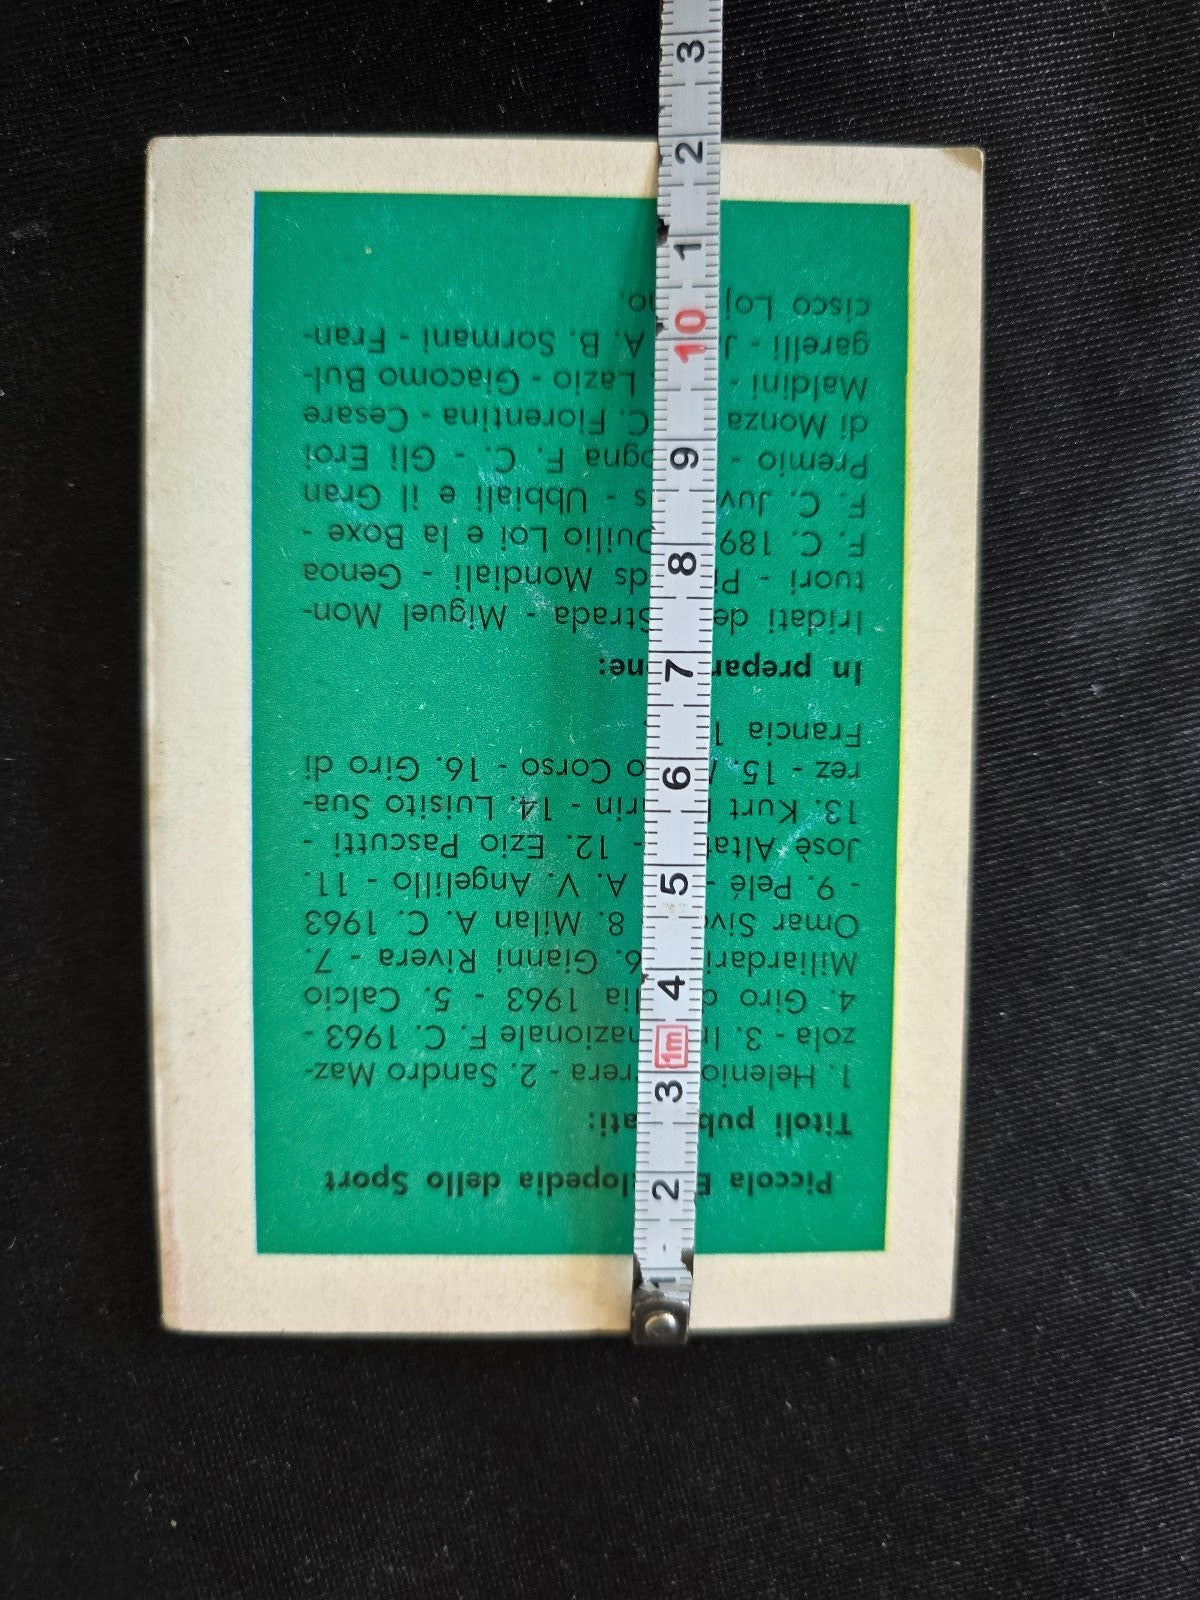 Piccola E lopedia dello Sport
Titoli pub ati:
1. Helenio rrera - 2. Sandro Maz-
zola - 3. In nazionale F. C. 1963 -
4. Giro d lia 1963 - 5. Calcio
Miliardari 6. Gianni Rivera - 7.
Omar Sivo 8. Milan A. C. 1963
- 9. Pelé - A. V. Angelillo - 11.
Josè Altaf - 12. Ezio Pascutti -
13. Kurt H rin - 14. Luisito Sua-
rez - 15. M o Corso - 16. Giro di
Francia 1
In prepar one:
Iridati de Strada - Miguel Mon-
tuori - Pi ds Mondiali - Genoa
F. C. 189 Duilio Loi e la Boxe -
F. C. Juv s - Ubbiali e il Gran
Premio - ogna F. C. - Gli Eroi
di Monza C. Fiorentina - Cesare
Maldini - Lazio - Giacomo Bul-
garelli - J A. B. Sormani - Fran-
cisco Loj no.
1
2
3
1m
4
5
6
7
8
9
10
1
2
3